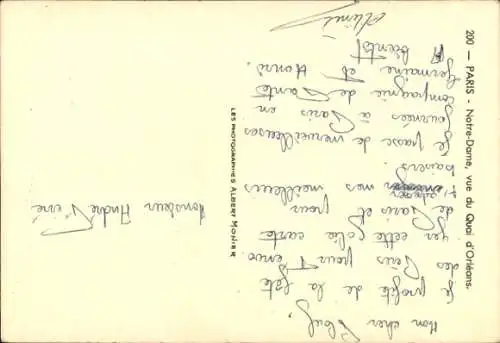 200 — PARIS - Notre-Dame, vue du Quai d'Orléans.
LES PHOTOGRAPHIES ALBERT MONIER
Mon cher
Je profite de la fête
des Pères pour
cette jolie carte
de Paris et pour
nos meilleurs
baisers.
Je passe de merveilleuses
journées à Paris en
compagnie de Tante
Germaine et
A bientôt
Monsieur André